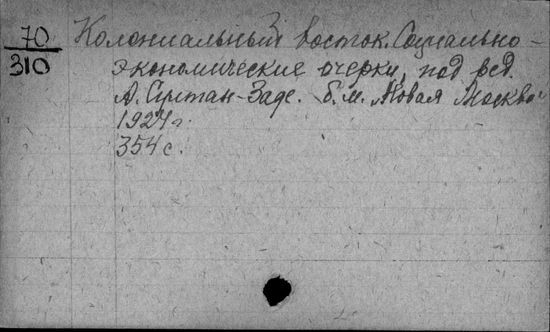 70
310
Колониальный восток. Социально-
экономические очерки, под ред.
А. Султан-Заде. б.м. „Новая Москва"
1924 г.
354 с.